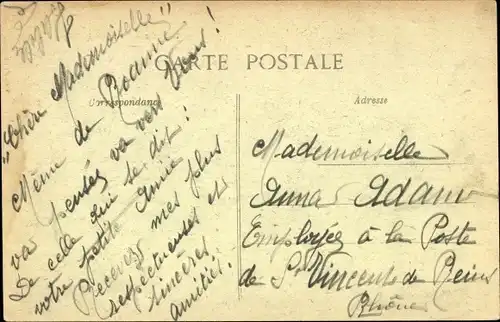 CARTE POSTALE
Correspondance
Adresse
"Chère Mademoiselle"
Même de Roanne
va pensée va vers Vous!
De celle qui se dit!
votre petite Amie
Recevez mes plus
respectueuses et
sincères
amitiés!
Mademoiselle
Anna Adam
Employée à la Poste
de St Vincent de Reins
Rhône